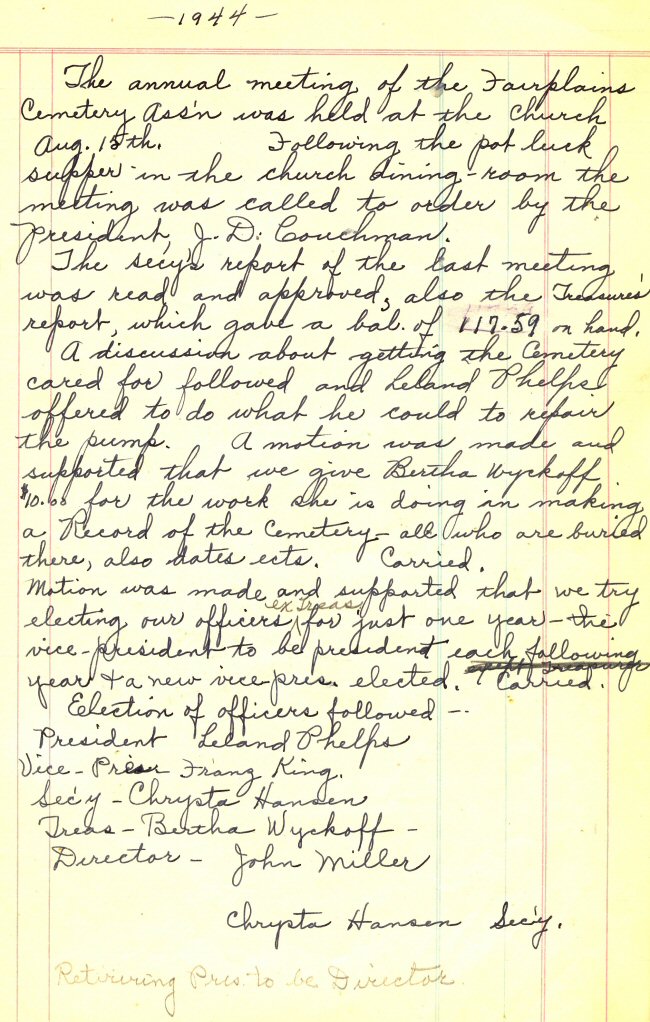 —1944—
The annual meeting of the Fairplains
Cemetery Ass'n was held at the church
Aug. 15th. Following the pot luck
supper in the church dining-room the
meeting was called to order by the
President, J. D. Couchman.
The secy's report of the last meeting
was read and approved, also the Treasure's
report, which gave a bal. of 117.59 on hand.
A discussion about getting the Cemetery
cared for followed and Leland Phelps
offered to do what he could to repair
the pump. A motion was made and
supported that we give Bertha Wyckoff
$10.00 for the work she is doing in making
a Record of the Cemetery - all who are buried
there, also dates ects. Carried.
Motion was made and supported that we try
ex Treas
electing our officers for just one year - the
vice-president to be president each following
year & a new vice-pres. elected. Carried.
Election of officers followed -.
President Leland Phelps
Vice-Pres Franz King.
Sec'y - Chrysta Hansen
Treas - Bertha Wyckoff -
Director - John Miller
Chrysta Hansen Sec'y.
Retiriring Pres. to be Director.